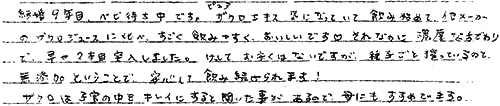 結婚9年目、ベビ待ち中です。ピュア
ザクロエキス 気になっていて飲み始めて、他メーカー
のザクロジュースに比べ、すごく飲みやすく、おいしいです。それなのに濃厚なこだわり
で、早や2本目突入しました。けしてお安くはないですが、種子ごと搾っているのと、
無添加ということで、安心して飲み続けられます!
ザクロは子宮の中をキレイにすると聞いた事があるので、母にもすすめています。